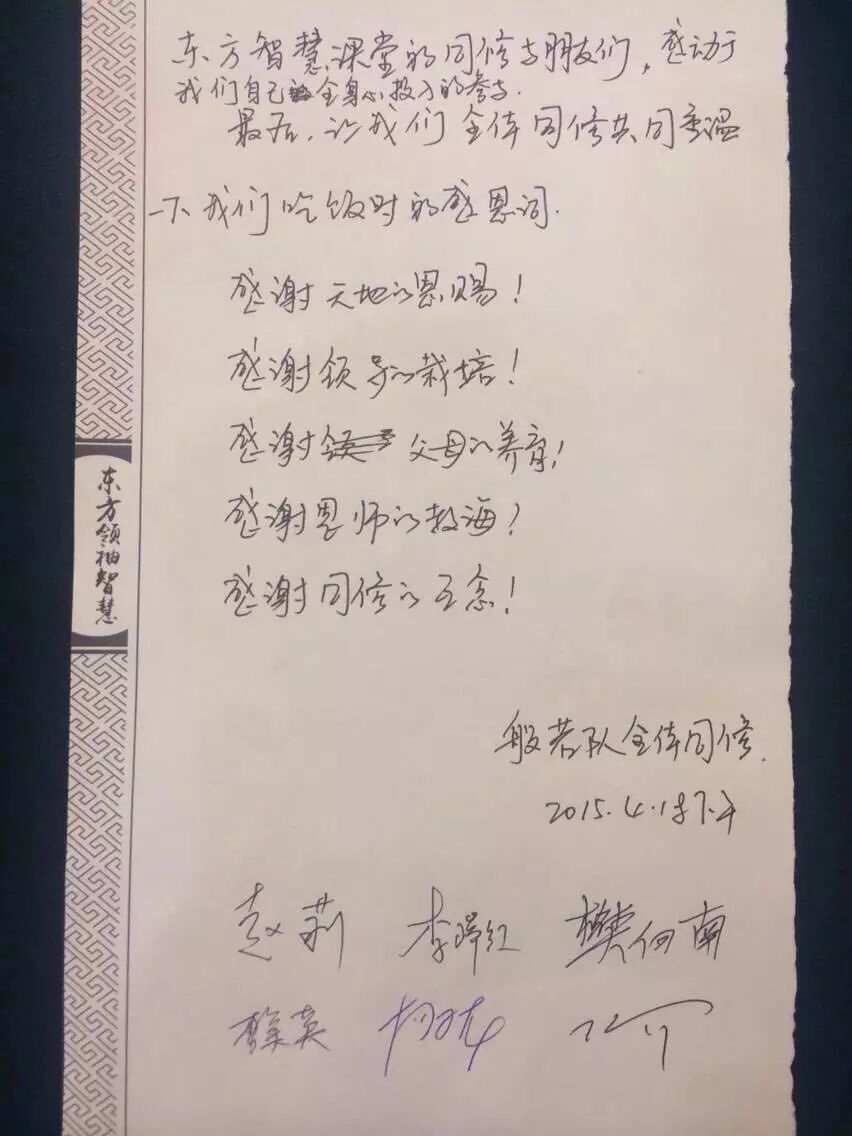 东方智慧课堂的同修与朋友们，感动于
我们自己全身心投入的参与.
最后，让我们全体同修共同重温
一下我们吃饭时的感恩词.
感谢天地的恩赐！
感谢领导的栽培！
感谢父母的养育！
感谢恩师的教海！
感谢同修的互念！
东方领袖智慧
般若队全体同修.
2015.4.18下午
赵莉 李 红 樊向南
英